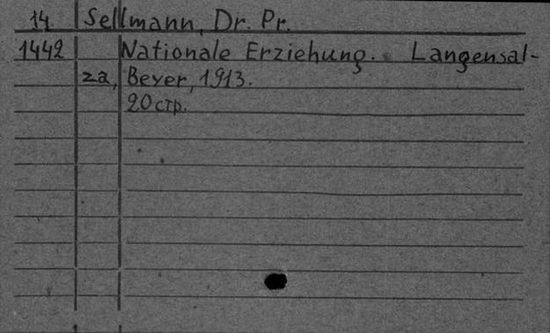 14 Sellmann, Dr. Pr.
1442 Nationale Erziehung. Langensal-
za, Beyer, 1913.
20 стр.